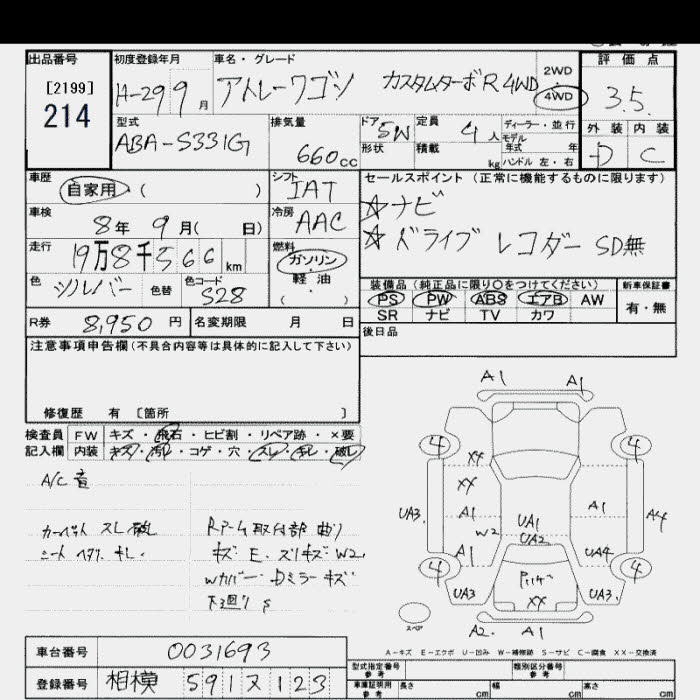 出品番号
[2199]
214
初度登録年月
H-29 9 月
車名・グレード
アトレーワゴン カスタムターボR 4WD
2WD
4WD
評価点
3.5
外装 内装
D C
型式
ABA-S331G
排気量
660cc
ドア 5W
形状
定員 4人
積載 kg
ディーラー・並行
モデル
年式 年
ハンドル 左・右
車歴
自家用 ( )
シフト
IAT
セールスポイント (正常に機能するものに限ります)
☆ナビ
☆ドライブレコーダー SD無
車検
8年 9月( 日)
冷房
AAC
走行
19万8千566 km
燃料
ガソリン
・
軽油
・
( )
色
シルバー
色替
色コード
S28
装備品 (純正品に限り○をつけてください)
PS PW ABS エアB AW
SR ナビ TV カワ
新車保証書
有・無
R券 8,950 円
名変期限 月 日
後日品
注意事項申告欄(不具合内容等は具体的に記入して下さい)
修復歴 有 [箇所 ]
検査員 FW キズ・飛石・ヒビ割・リペア跡・×要
記入欄 内装 キズ・汚れ・コゲ・穴・スレ・キレ・破レ
A/C 音
カーペット スレ 破レ
シート ヘタリ キレ
Rアーム取付部 曲り
キズ E. スリキズ W2
Wカバー Dミラー キズ
下廻り S
A1 A1
4 4
XX
XX
UA3. A1 UA1 A1 A4
W2 UA2
A1 UA4
4 4
UA3 XX UA3.
スペア
A2. A1
A-キズ E-エクボ U-凹み W-補修跡 S-サビ C-腐食 XX-交換済
車台番号 0031693
型式指定番号
参考
類別区分番号
参考
登録番号 相模 591 ヌ 123
車庫証明用
参考
長さ cm 幅 cm 高さ cm